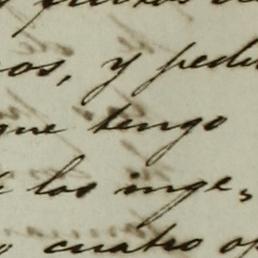 os, y pedi
que tengo
los inge,
cuatro o